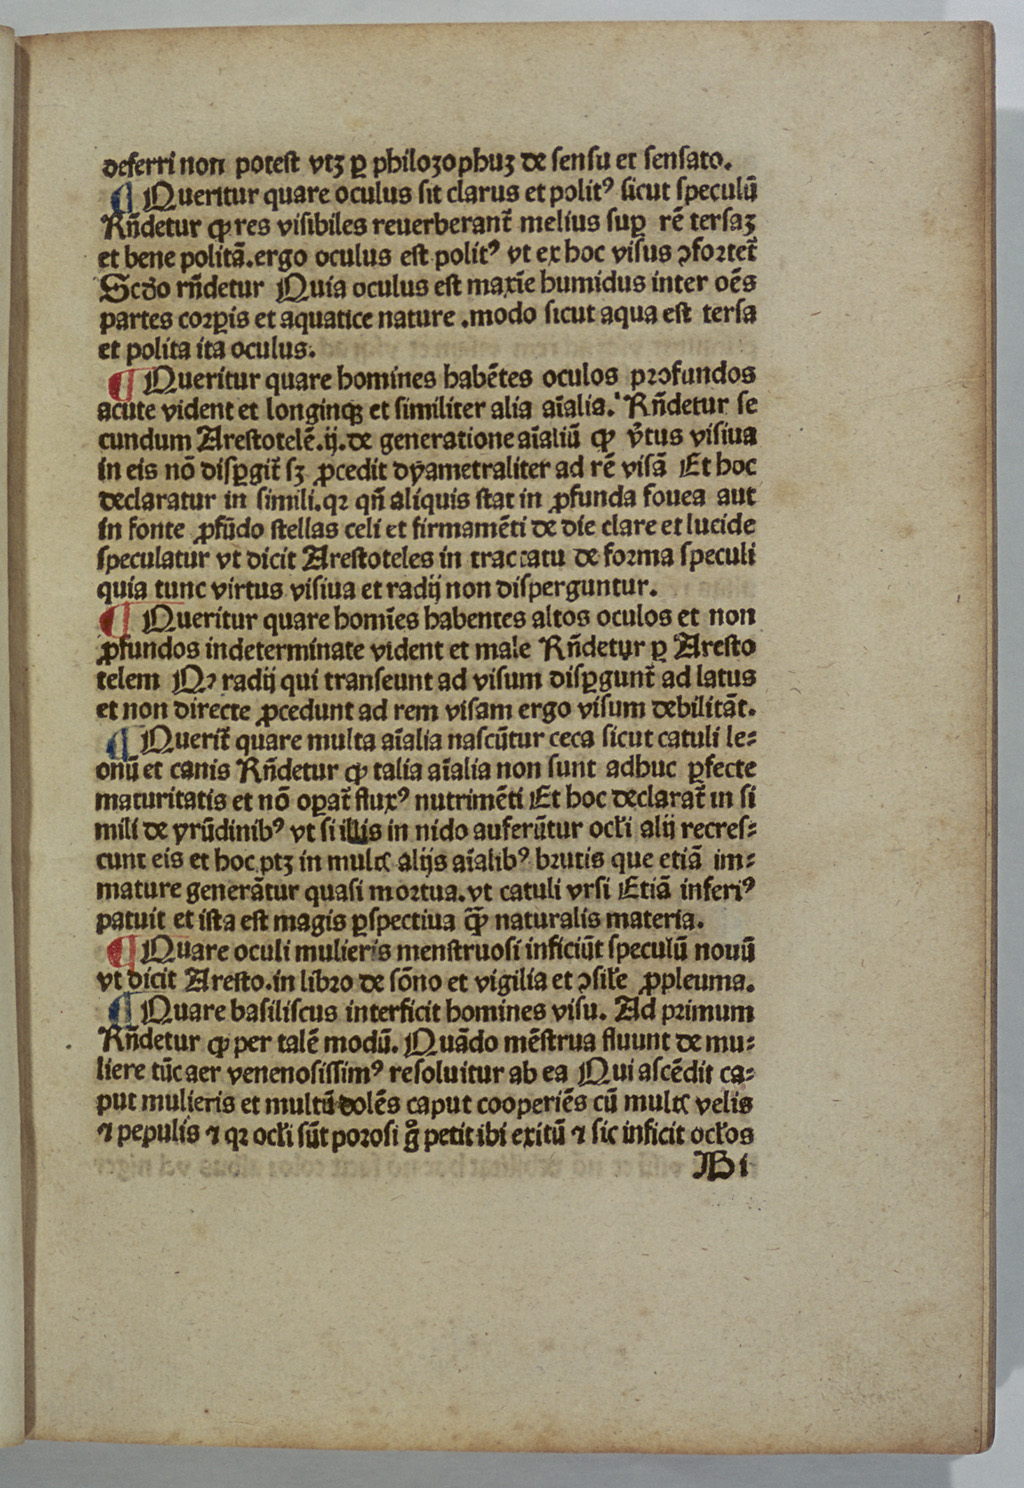 deferri non potest vtꝫ ꝑ philozophuꝫ de sensu et sensato.
¶ Queritur quare oculus sit clarus et politꝰ sicut speculū
Rn̄detur ꝙ res visibiles reuerberant᷑ melius suꝑ rē tersaꝫ
et bene politā.ergo oculus est politꝰ vt ex hoc visus ↄfortet᷑
Scd̓o rn̄detur Quia oculus est maxīe humidus inter oēs
partes corꝑis et aquatice nature .modo sicut aqua est tersa
et polita ita oculus.
¶ Queritur quare homines habētes oculos profundos
acute vident et longinqꝫ et similiter alia aīalia. Rn̄detur se
cundum Arestotelē.ij.de generatione aīaliū ꝙ v̓tus visiua
in eis nō disꝑgit᷑ sꝫ ꝓcedit dyametraliter ad rē visā Et hoc
declaratur in simili.qꝛ qn̄ aliquis stat in ꝓfunda fouea aut
in fonte ꝓfūdo stellas celi et firmamēti de die clare et lucide
speculatur vt dicit Arestoteles in tractatu de forma speculi
quia tunc virtus visiua et radij non disperguntur.
¶ Queritur quare homīes habentes altos oculos et non
ꝓfundos indeterminate vident et male Rn̄detur ꝑ Aresto
telem Qꝛ radij qui transeunt ad visum disꝑgunt᷑ ad latus
et non directe ꝓcedunt ad rem visam ergo visum debilitāt.
¶ Querit᷑ quare multa aīalia nascūtur ceca sicut catuli le⸗
onū et canis Rn̄detur ꝙ talia aīalia non sunt adhuc ꝑfecte
maturitatis et nō oꝑat᷑ fluxꝰ nutrimēti Et hoc declarat᷑ in si
mili de yrūdinibꝰ vt si illis in nido auferūtur ocl̓i alij recres⸗
cunt eis et hoc ptꝫ in multꝭ alijs aīalibꝰ brutis que etiā im⸗
mature generātur quasi mortua.vt catuli vrsi Etiā inferiꝰ
patuit et ista est magis ꝑspectiua ꝙ̄ naturalis materia.
¶ Quare oculi mulieris menstruosi inficiūt speculū nouū
vt dicit Aresto.in libro de sōno et vigilia et ↄsil̓e ꝓpleuma.
¶ Quare basiliscus interficit homines visu. Ad primum
Rn̄detur ꝙ per talē modū. Quādo mēstrua fluunt de mu⸗
liere tūc aer venenosissimꝰ resoluitur ab ea Qui ascēdit ca⸗
put mulieris et multū dolēs caput cooperiēs cū multꝭ velis
⁊ pepulis ⁊ qꝛ ocl̓i sūt porosi g̊ petit ibi exitū ⁊ sic inficit ocl̓os
Bi